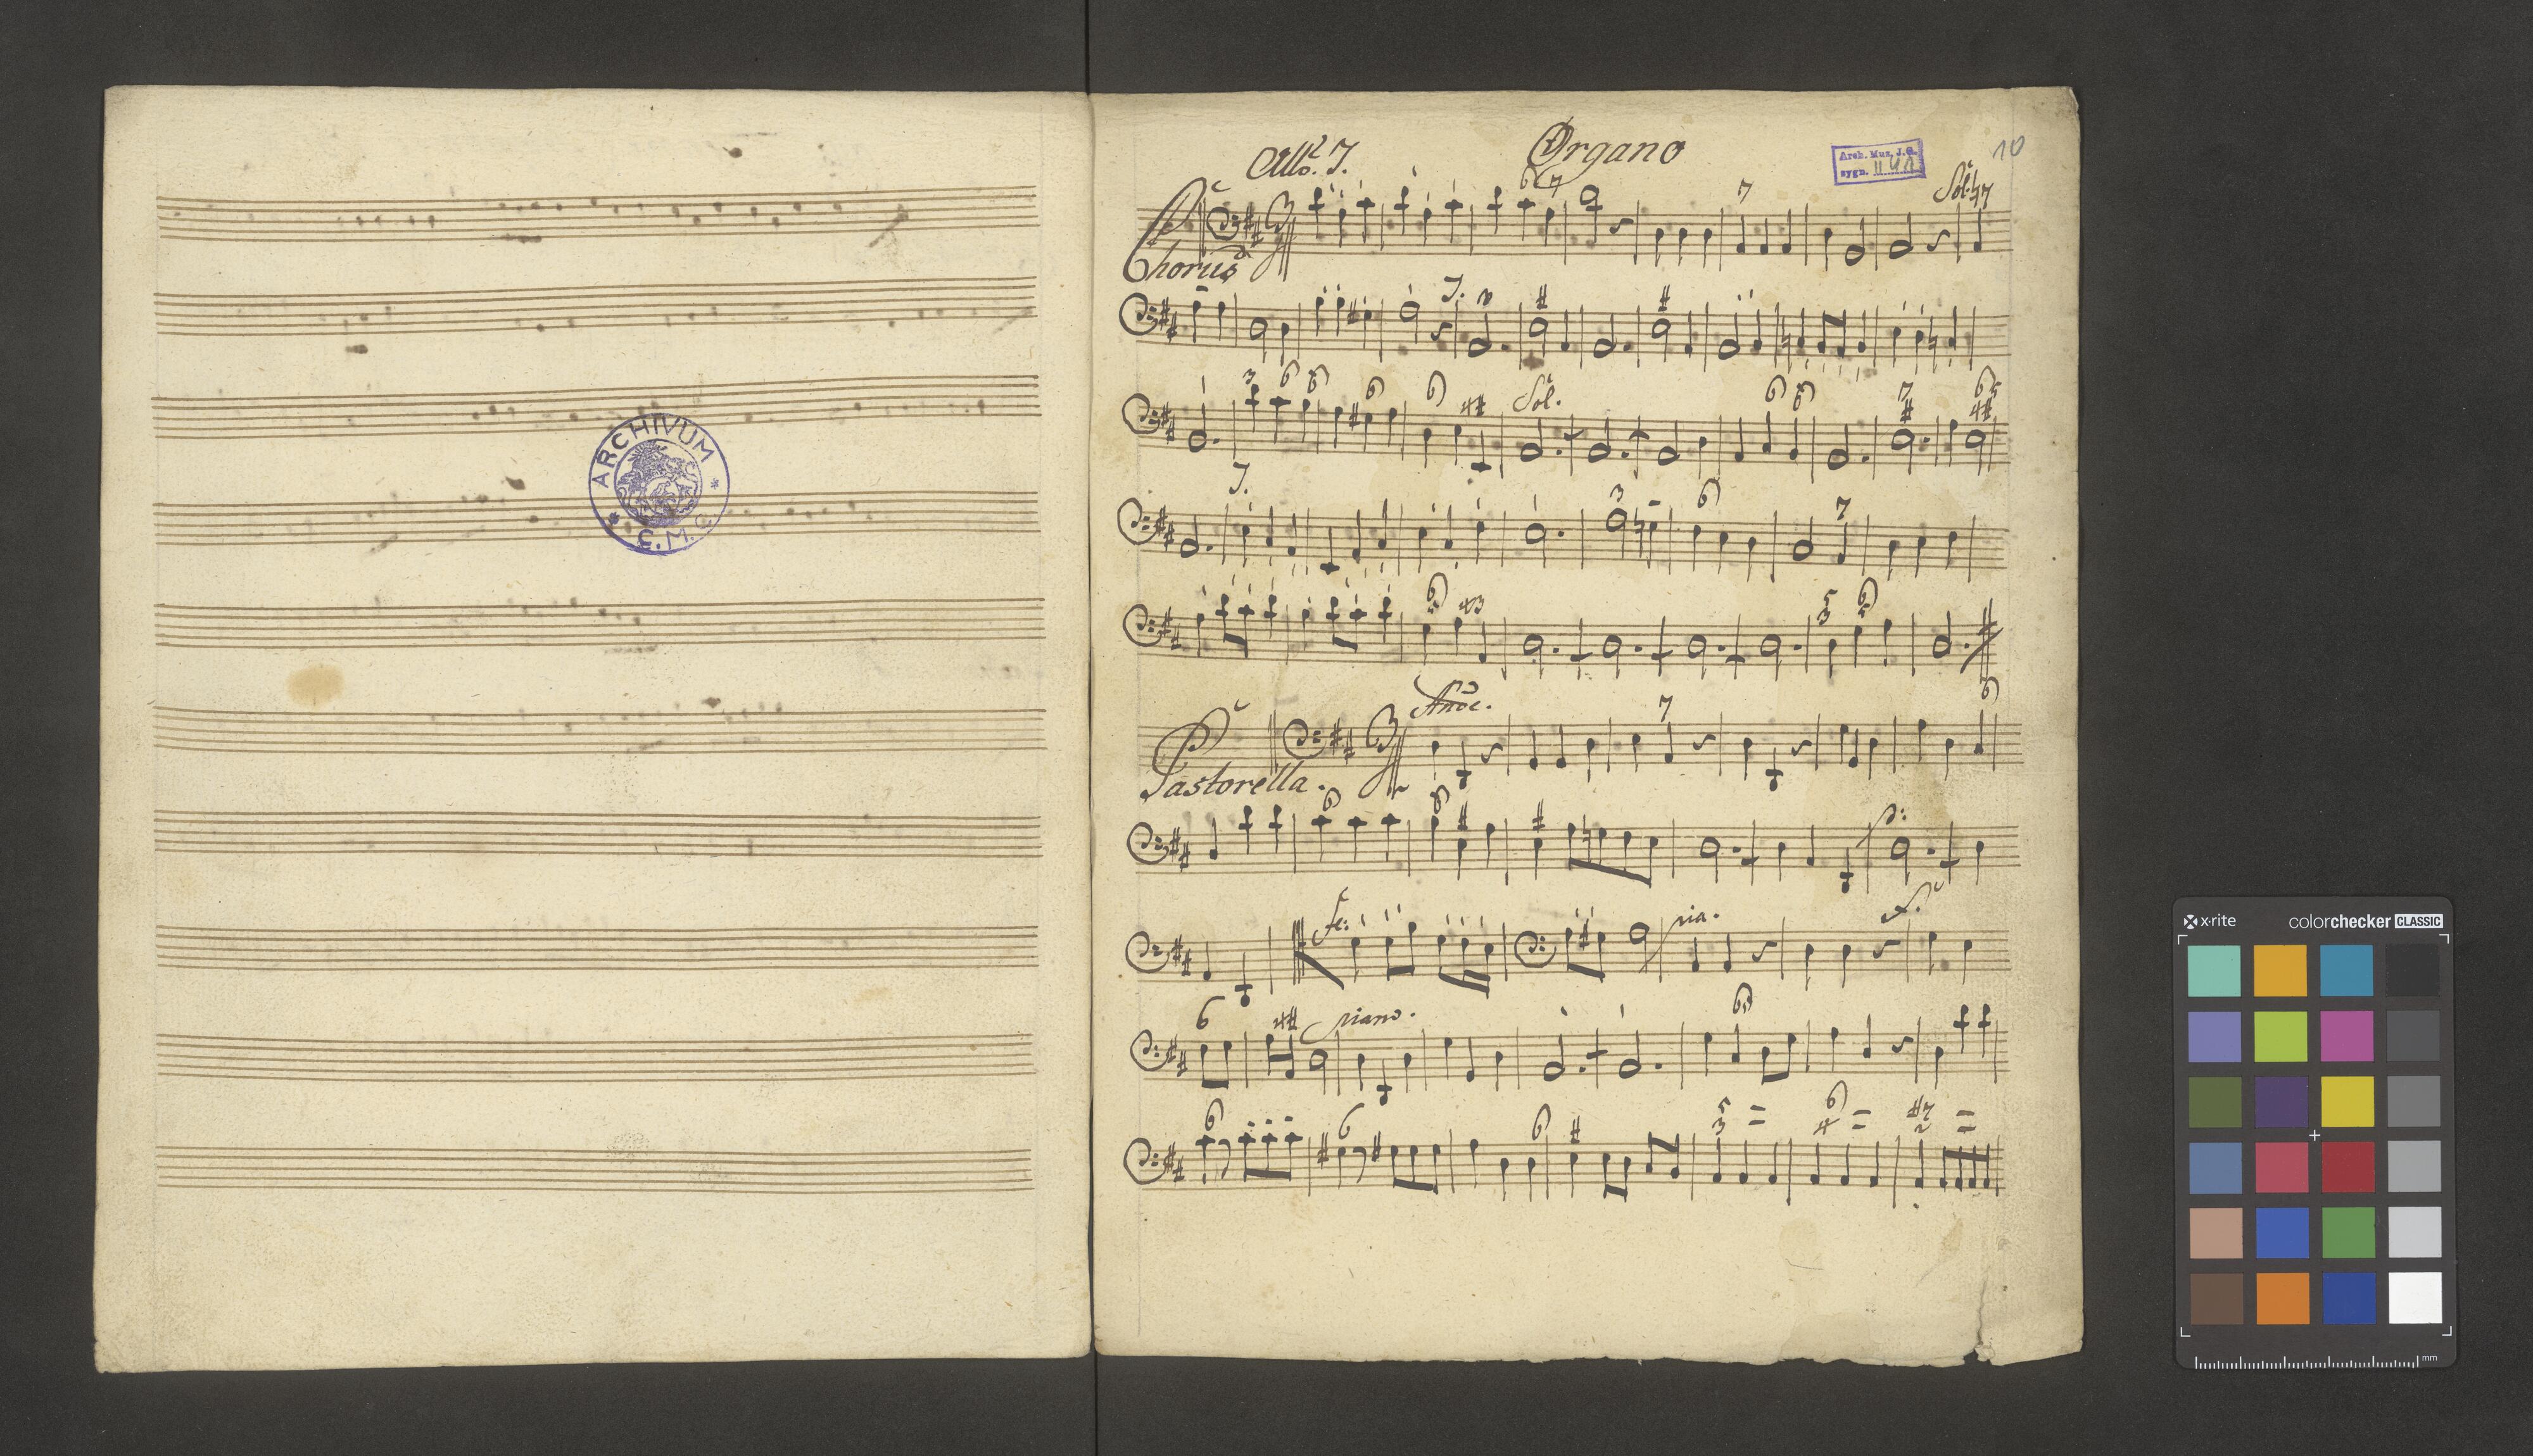 ARCHIVUM
C. M.
Organo
Allo. T.
Arch. Muz. J. G.
sygn. II 41
10
Sol.
Chorus
T.
Sol.
T.
And.e
Pastorella.
p:
fe:
pia.
f.
piano.
x-rite
colorchecker CLASSIC
mm